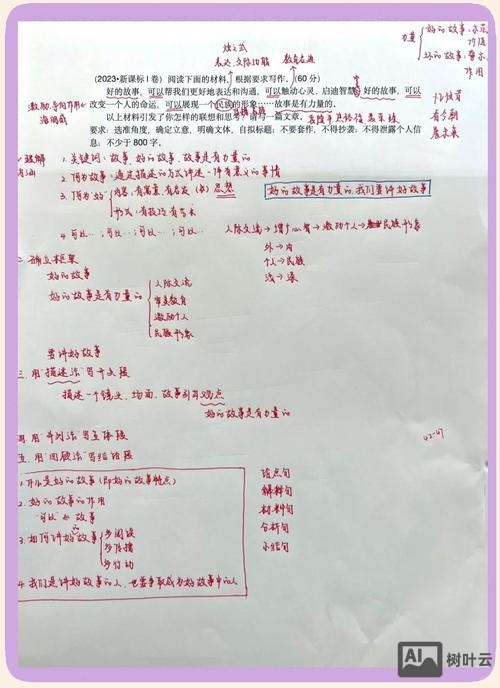 独立式
表达、交际功能 教育意义
力量 好的故事:示范
作用
坏的故事:警示
作用
(2023•新课标Ⅰ卷)阅读下面的材料,根据要求写作。(60分)
好的故事,可以帮我们更好地表达和沟通,可以触动心灵、启迪智慧;好的故事,可以
改变一个人的命运,可以展现一个民族的形象……故事是有力量的。
以上材料引发了你怎样的联想和思考?请写一篇文章。
要求:选准角度,确定立意,明确文体,自拟标题;不要套作,不得抄袭;不得泄露个人信
息;不少于800字。
激励、导向作用
看今朝
展未来
1. 关键词:故事、好的故事、故事是有力量的
2. 何为故事:通过描述的方式讲述一件有意义的事情
3. 何为"好" 内容:有寓意、有启发 思想
形式:有技巧、有艺术
好的故事是有力量的,我们要讲好故事
4. 可以…;可以…;可以…;可以…
人际交流→增长心智→激励个人→民族形象
外→内
个人→民族
浅→深
二. 确立框架
好的故事
好的故事是有力量的
人际交流
审美教育
激励个人
民族形象
要讲好故事
三. 用"描述法"写开头段
描述一个镜头、场面、故事引出观点
好的故事是有力量的
四. 用"并列法"写主体段
五. 用"回环法"写结语段
1. 什么是好的故事(即好的故事特点)
2. 好的故事的作用
"可以"的故事
3. 如何讲好故事
多阅读
多传播
多行动
4. 我们是讲好故事的人,也要争取成为好故事中的人
论点句
解释句
材料句
分析句
小结句
42-47
AI 树叶云